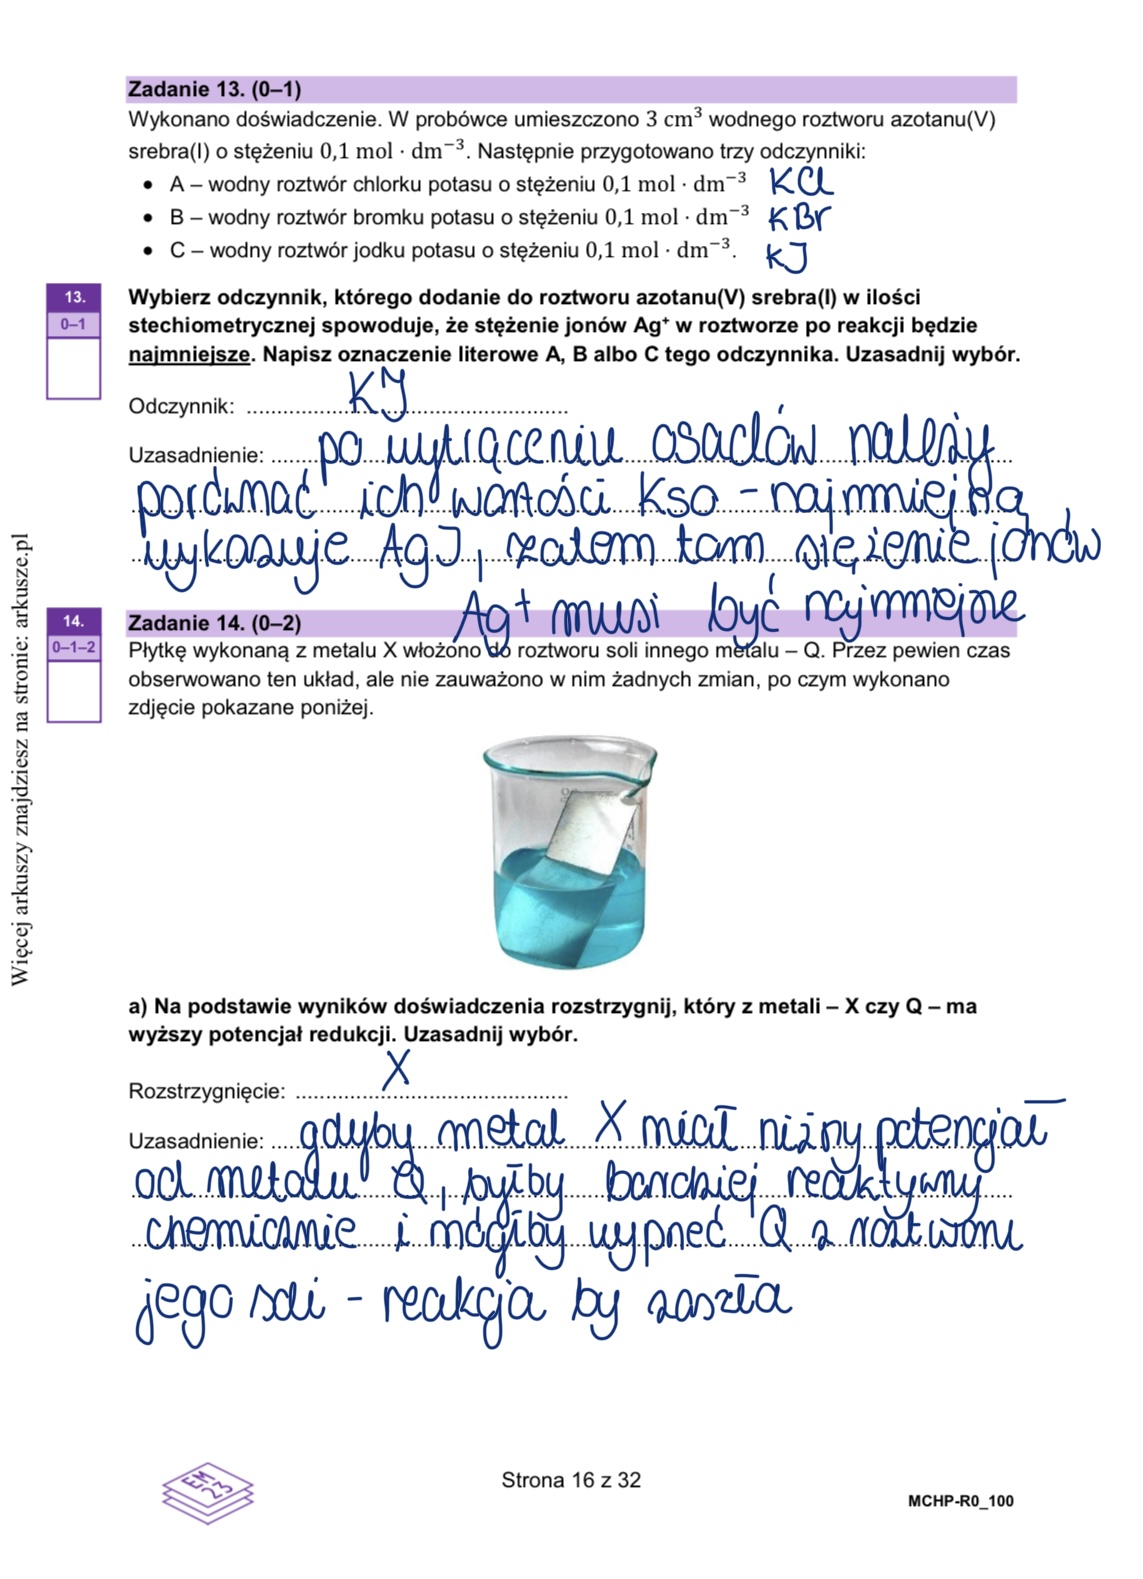 Zadanie 13. (0–1)
Wykonano doświadczenie. W probówce umieszczono 3 cm³ wodnego roztworu azotanu(V)
srebra(I) o stężeniu 0,1 mol · dm⁻³. Następnie przygotowano trzy odczynniki:
• A – wodny roztwór chlorku potasu o stężeniu 0,1 mol · dm⁻³ KCl
• B – wodny roztwór bromku potasu o stężeniu 0,1 mol · dm⁻³ KBr
• C – wodny roztwór jodku potasu o stężeniu 0,1 mol · dm⁻³. KJ
13.
0–1
Wybierz odczynnik, którego dodanie do roztworu azotanu(V) srebra(I) w ilości
stechiometrycznej spowoduje, że stężenie jonów Ag⁺ w roztworze po reakcji będzie
najmniejsze. Napisz oznaczenie literowe A, B albo C tego odczynnika. Uzasadnij wybór.
Odczynnik: KJ
Uzasadnienie: po wytrąceniu osadów należy
porównać ich wartości Kso - najmniejszą
wykazuje AgJ, zatem tam stężenie jonów
Ag⁺ musi być najmniejsze
14.
0–1–2
Zadanie 14. (0–2)
Płytkę wykonaną z metalu X włożono do roztworu soli innego metalu – Q. Przez pewien czas
obserwowano ten układ, ale nie zauważono w nim żadnych zmian, po czym wykonano
zdjęcie pokazane poniżej.
a) Na podstawie wyników doświadczenia rozstrzygnij, który z metali – X czy Q – ma
wyższy potencjał redukcji. Uzasadnij wybór.
Rozstrzygnięcie: X
Uzasadnienie: gdyby metal X miał niższy potencjał
od metalu Q, byłby bardziej reaktywny
chemicznie i mógłby wyprzeć Q z roztworu
jego soli - reakcja by zaszła
Więcej arkuszy znajdziesz na stronie: arkusze.pl
EM
23
Strona 16 z 32
MCHP-R0_100